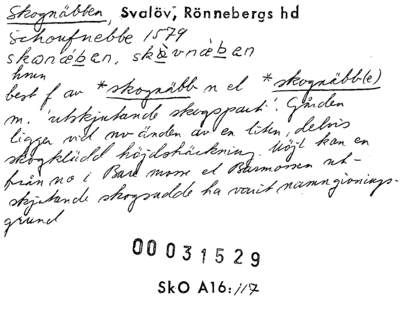 Skognäbben, Svalöv, Rönnebergs hd
Schoufnebbe 1579
skωnǽbən, skὰvnǽbən
hmn
best f av *skognäbb n el *skognäbb(e)
m. 'utskjutande skogsparti'. Gården
ligger vid nv änden av en liten, delvis
skogklädd höjdsträckning. Möjl kan en
från no i Bare mosse el Baremossen ut-
skjutande skogsudde ha varit namngivnings-
grund
00031529
SkO A16:117